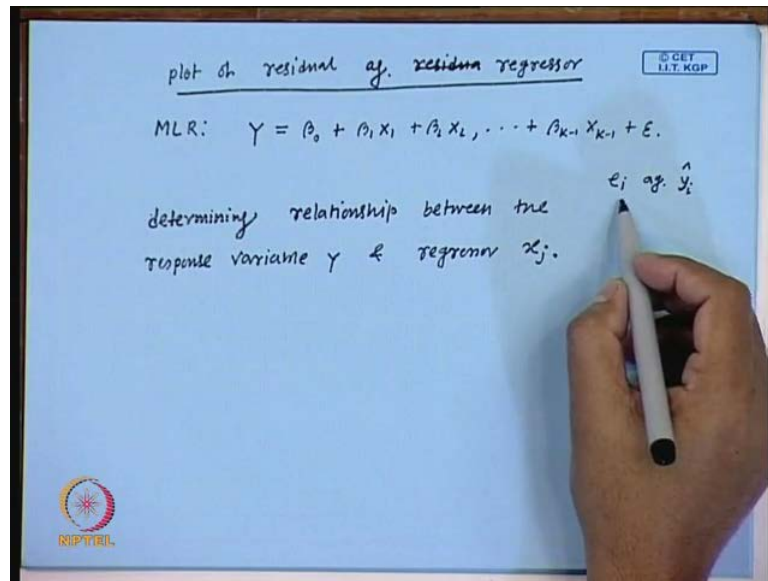 plot on residual ag. residua regressor
© CET
I.I.T. KGP
MLR: Y = β₀ + β₁ X₁ + β₂ X₂, ⋯ + βₖ₋₁ Xₖ₋₁ + ε.
eᵢ ag. ŷᵢ
determining relationship between the
response variable Y & regressor xⱼ.
NPTEL